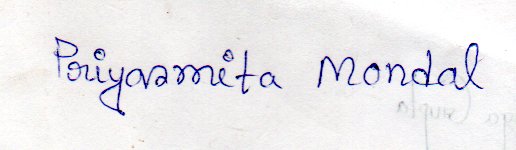 Priyasmita Mondal